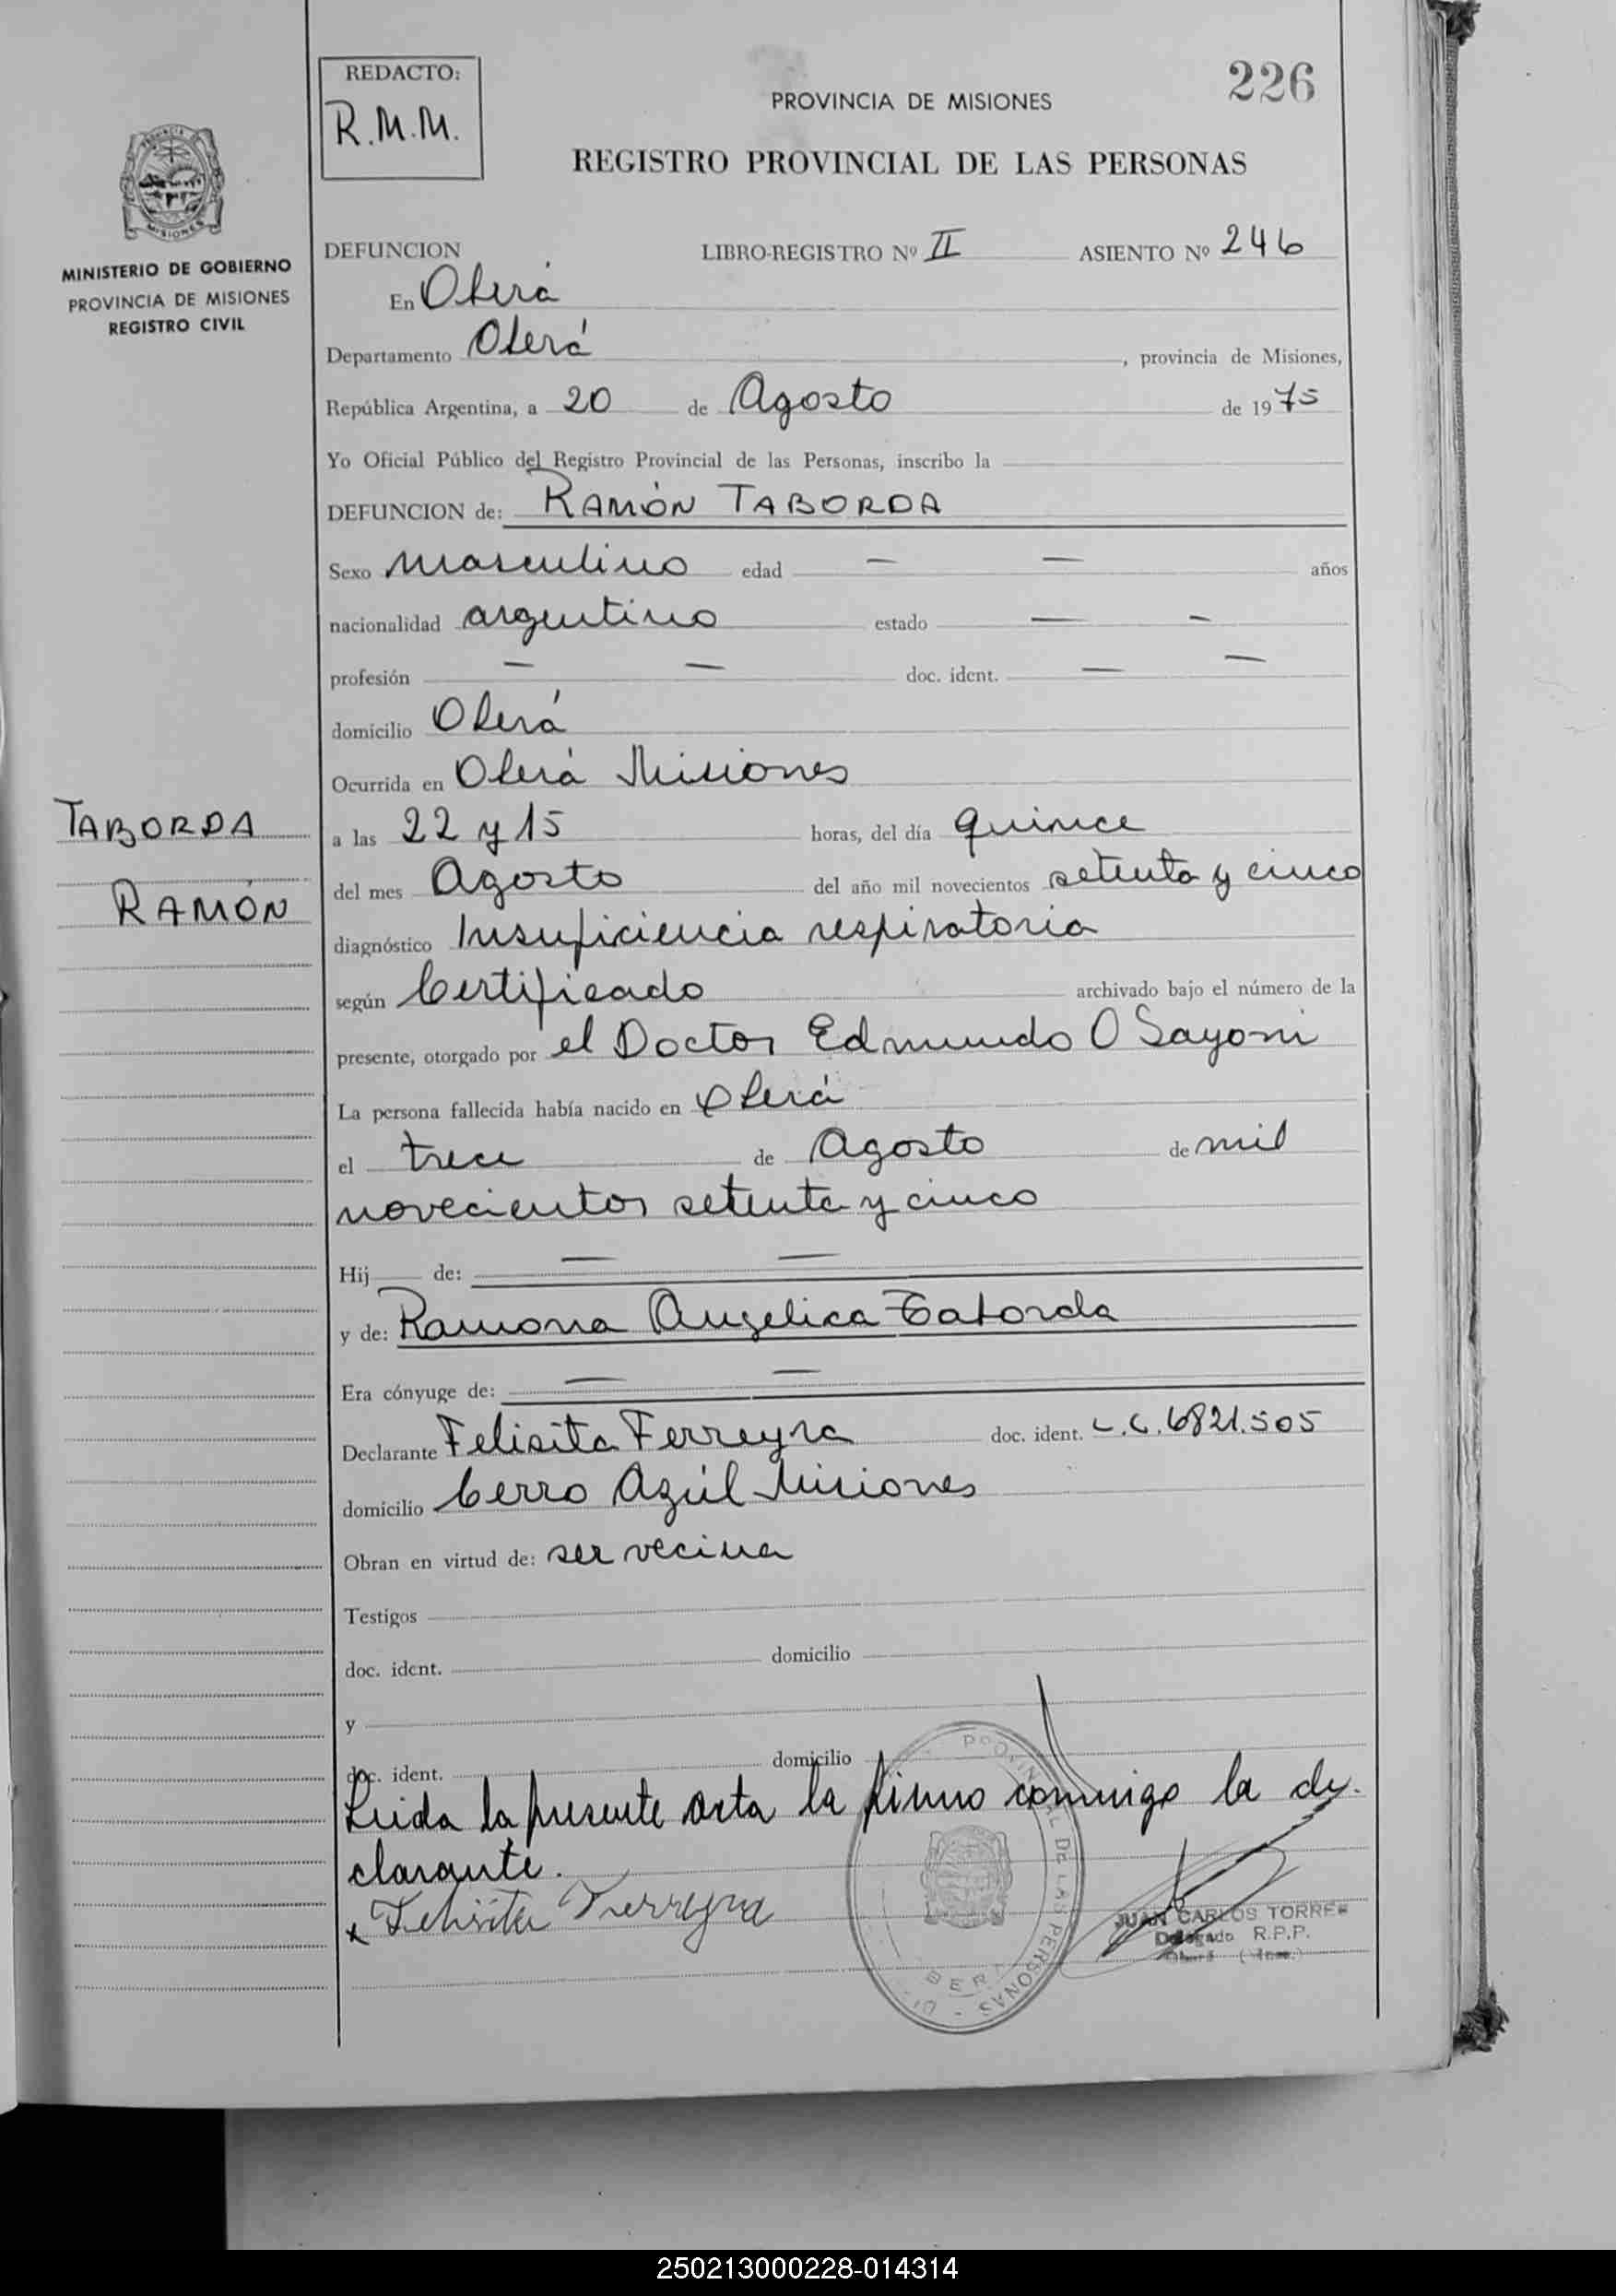 REDACTO:
R.M.M.
226
PROVINCIA DE MISIONES
REGISTRO PROVINCIAL DE LAS PERSONAS
MISIONES
MINISTERIO DE GOBIERNO
PROVINCIA DE MISIONES
REGISTRO CIVIL
DEFUNCION LIBRO-REGISTRO Nº II ASIENTO Nº 246
En Oberá
Departamento Oberá, provincia de Misiones,
República Argentina, a 20 de Agosto de 1975
Yo Oficial Público del Registro Provincial de las Personas, inscribo la
DEFUNCION de: RAMÓN TABORDA
Sexo masculino edad — — años
nacionalidad argentino estado — -
profesión — — doc. ident. — —
domicilio Oberá
Ocurrida en Oberá Misiones
TABORDA
RAMÓN
a las 22 y 15 horas, del día quince
del mes Agosto del año mil novecientos setenta y cinco
diagnóstico Insuficiencia respiratoria
según Certificado archivado bajo el número de la
presente, otorgado por el Doctor Edmundo O Sayoni
La persona fallecida había nacido en Oberá
el trece de Agosto de mil
novecientos setenta y cinco
Hij de: — —
y de: Ramona Angelica Taborda
Era cónyuge de: — —
Declarante Felisita Ferreyra doc. ident. L.C. 6821.505
domicilio Cerro Azúl Misiones
Obran en virtud de: ser vecina
Testigos
doc. ident. domicilio
y
doc. ident. domicilio
Leida la presente acta la firma conmigo la de-
clarante.
x Felisita Ferreyra
PROVINCIAL DE LAS PERSONAS
JUAN CARLOS TORRES
Delegado R.P.P.
Oberá (Mnes.)
250213000228-014314